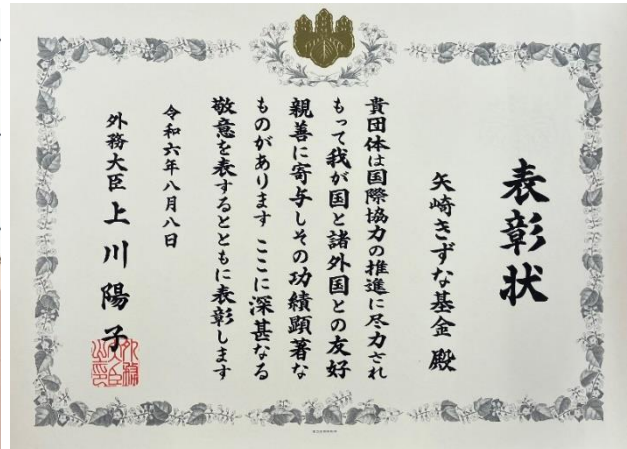 表彰状
矢崎きずな基金 殿
貴団体は国際協力の推進に尽力され
もって我が国と諸外国との友好
親善に寄与しその功績顕著な
ものがあります ここに深甚なる
敬意を表するとともに表彰します
令和六年八月八日
外務大臣 上川陽子